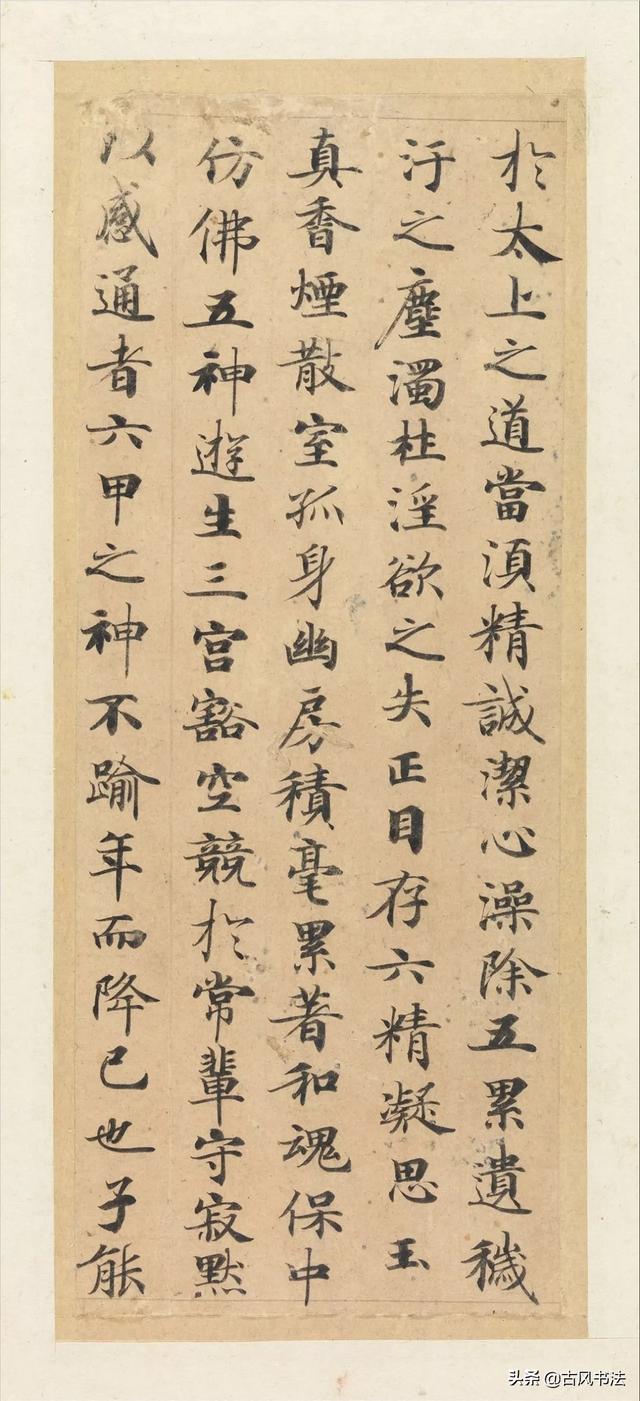 於太上之道當湏精誠潔心澡除五累遺穢
汙之塵濁杜淫欲之失正目存六精凝思玉
真香煙散室孤身幽房積毫累著和魂保中
仿佛五神遊生三宮豁空競於常輩守寂默
以感通者六甲之神不踰年而降已也子能
头条 @古风书法